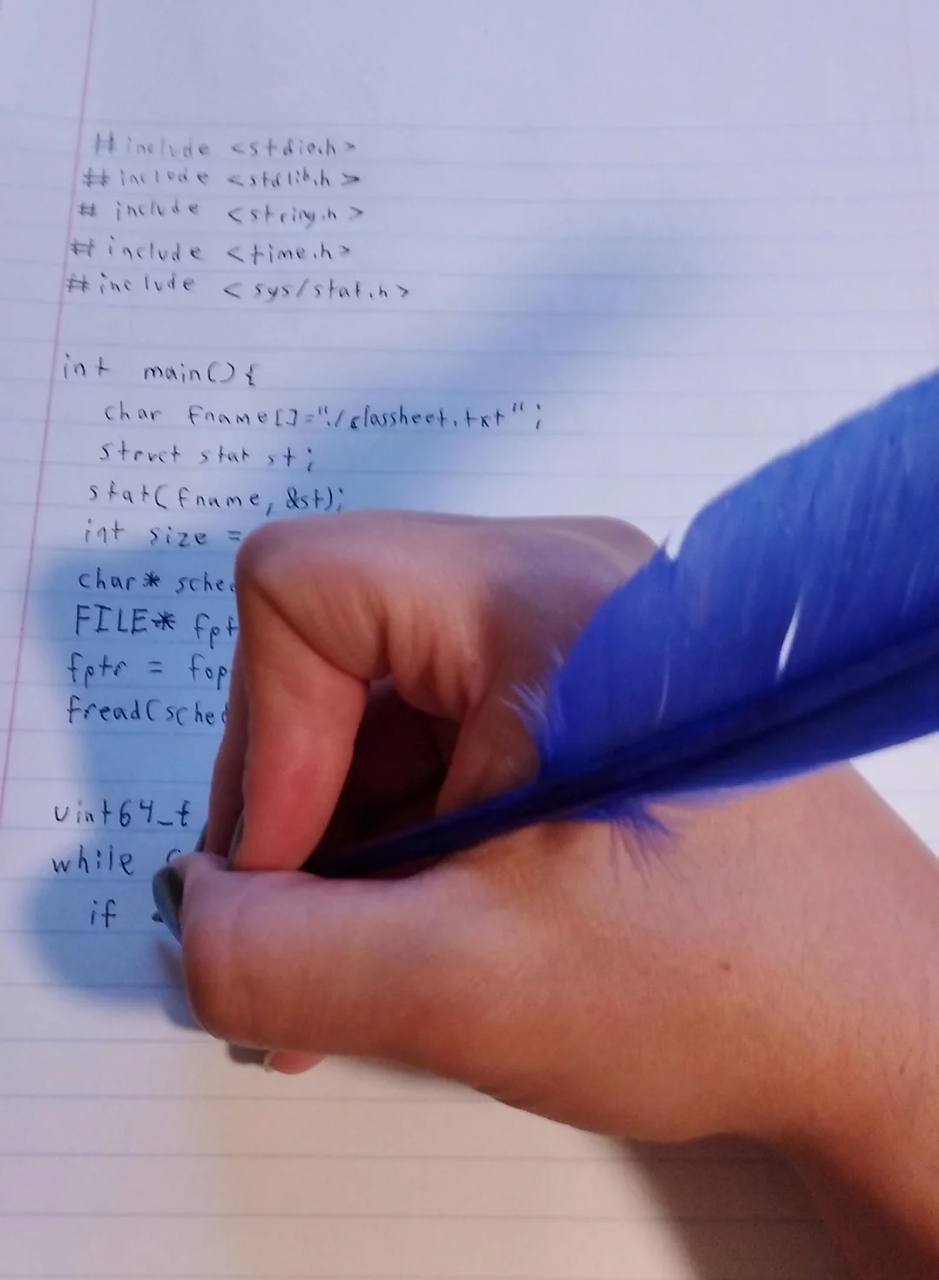 #include <stdio.h>
#include <stdlib.h>
# include <string.h>
#include <time.h>
#include <sys/stat.h>
int main(){
char fname[]="./classheet.txt";
struct stat st;
stat(fname, &st);
int size =
char* sche
FILE* fpt
fptr = fop
fread(sche
uint64_t
while (
if